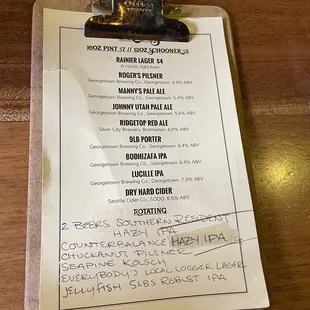 16OZ PINT $7 // 12OZ SCHOONER $5
RAINIER LAGER $4
A classic light beer
ROGER'S PILSNER
Georgetown Brewing Co., Georgetown. 4.9% ABV
MANNY'S PALE ALE
Georgetown Brewing Co., Georgetown. 5.4% ABV
JOHNNY UTAH PALE ALE
Georgetown Brewing Co., Georgetown. 5.6% ABV
RIDGETOP RED ALE
Silver City Brewery, Bremerton. 6.0% ABV
9LB PORTER
Georgetown Brewing Co., Georgetown. 6.4% ABV
BODHIZAFA IPA
Georgetown Brewing Co., Georgetown. 6.9% ABV
LUCILLE IPA
Georgetown Brewing Co., Georgetown. 7.0% ABV
DRY HARD CIDER
Seattle Cider Co., SODO. 6.5% ABV
ROTATING
2 BEERS SOUTHERN RESIDENT
HAZY IPA
COUNTERBALANCE HAZY IPA
CHUCKANUT PILSNER
SEAPINE KOLSCH
EVERYBODY'S LOCAL LOGGER LAGER
JELLYFISH 5LBS ROBUST IPA